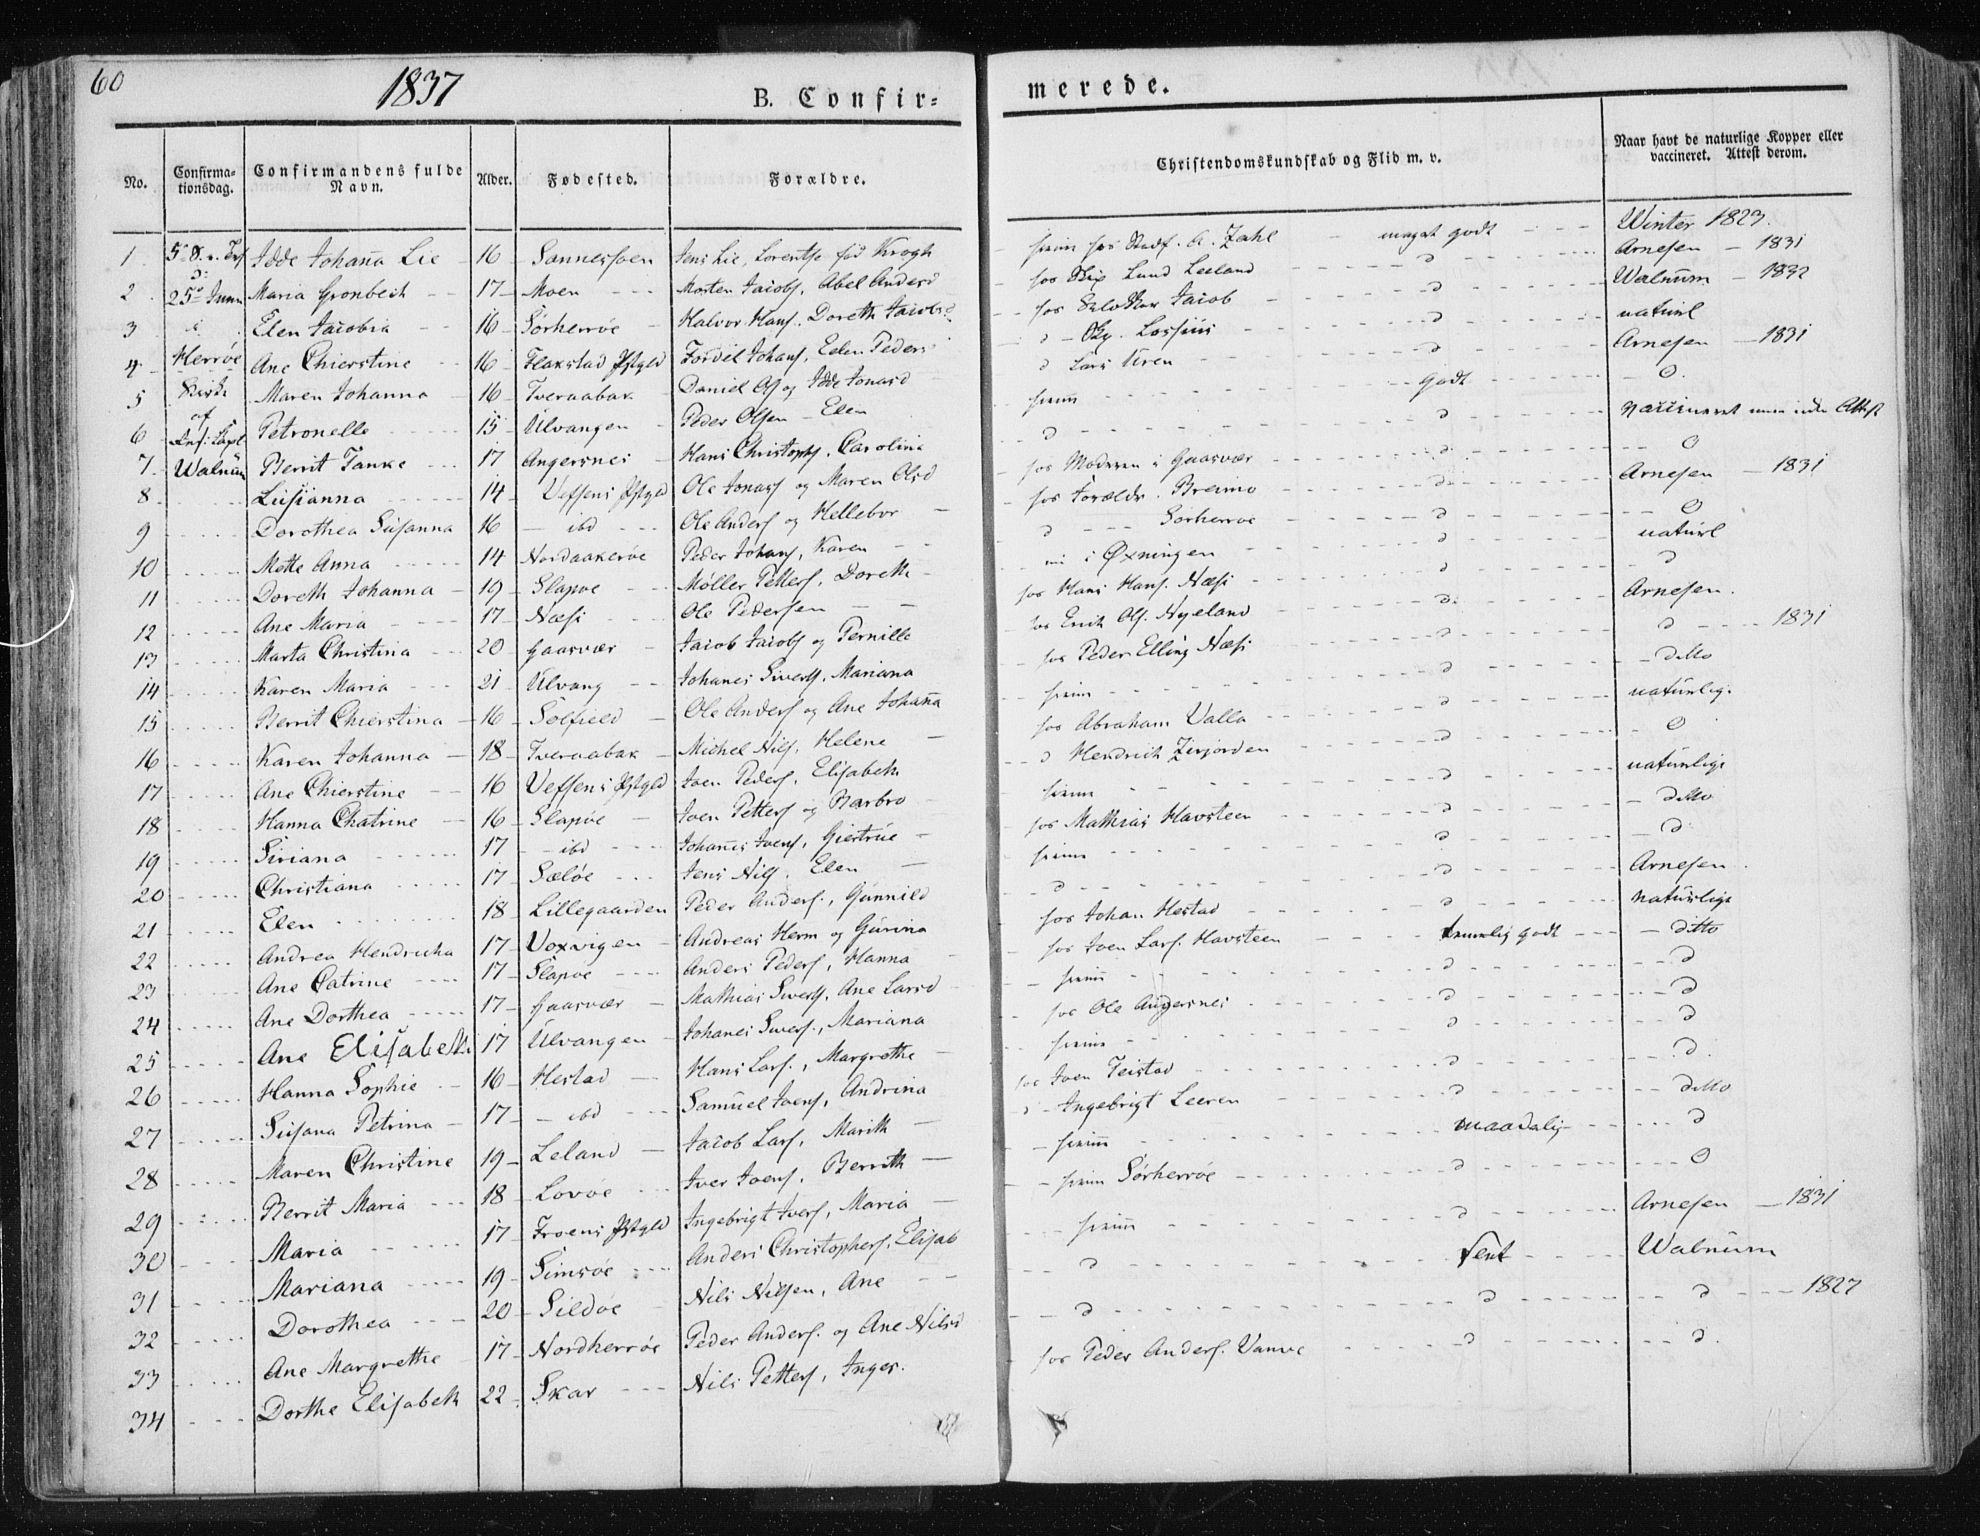 60 1837 B. Confir= merede.
No. Confirma- tionsdag. Confirmandens fulde Navn. Alder. Fødested. Forældre. Christendomskundskab og Flid m. v. Naar havt de naturlige Kopper eller vaccineret. Attest derom.
1 Idde Johanna Lie 16 Sannessøen Jens Lie, Lorentse fød Krogh A. Zahl meget godt Winter 1823
2 25de Juni Maria Grønbech 17 Moen Morten Jacobs, Abel Andersd hos Lund Leeland d Arnesen 1831
3 Elen Jacobia 16 Sørherrøe Halvor Hans. Doreth Jacobsd hos Jacob d Walnum 1832
4 Herrøe Ane Chierstine 16 Flakstad Pstgld Johans, Elen Peders d Lossius d naturl
5 Kirke Maren Johanna 16 Tveraabak Daniel Os og Idde Jonasd d Lars Uren d Arnesen 1831
6 af Petronelle 15 Ulvangen Peder Olsen Elen hiem Godt d
7 Walnum Berrit Tanke 17 Angersnes Hans Christophs, Carolina d d
8 Lusianna 14 Vefsens Pstgld Ole Jonass og Maren Olsd hos Moderen i Gaasvær d d
9 Dorothea Susanna 16 ibd Ole Anders og Hellebor hos Forældr. Breimo d Arnesen 1831
10 Mette Anna 14 Nordaakerøe Peder Johans, Karen d Sørherroe d d
11 Doreth Johanna 19 Slapøe Møller Petters, Doreth i Øxningen d naturl
12 Ane Maria 17 Næsi Ole Pedersen hos Hans Hans. Næsi d d
13 Marta Christina 20 Gaasvær Jacob Jacobs og Pernille hos Erich Ols. Nyeland d Arnesen.
14 Karen Maria 21 Ulvang Johanes Siverts, Mariana hos Peder Elling Næsi d d 1831
15 Berrit Chierstina 16 Solfield Ole Anders og Ane Johanna hiem d ditto
16 Karen Johanna 18 Tveraabak Michel Nils, Helene hos Abraham Valla d naturlig.
17 Ane Chierstine 16 Vefsens Pstgld Joen Peders, Elisabeth d Hendrich Zirjorden d d
18 Hanna Chatrine 16 Slapøe Joen Petters og Barbro hiem d naturlige
19 Siriana 17 ibd Johanes Joens, Giertrue hos Mathias Havsteen d ditto
20 Christiana 17 Sæløe Jens Nils, Elen hiem d d
21 Elen 18 Lillegaarden Peder Anders., Gunnild d d Arnesen.
22 Andrea Hendricha 17 Voxvigen Andreas Herm og Gurina hos Johan Hestad d naturlige
23 Ane Catrine 17 Slapøe Anders Peders, Hanna hos Joen Lars. Havsteen temmelig godt ditto
24 Ane Dorthea 17 Gaasvær Mathias Siverts, Ane Larsd hiem d d
25 Ane Elisabeth 17 Ulvangen Johanes Sivers., Mariana hos Ole Angersnes d d
26 Hanna Sophie 16 Hestad Hans Lars., Margrethe hiem d d
27 Susana Petrina 17 ibd Samuel Joens, Andrina hos Joen Teistad d d
28 Maren Christine 19 Leland Jacob Lars, Marith d Ingebrigt Leeren d ditto
29 Berrit Maria 18 Lovøe Iver Joens, Berrith hiem maadelig d
30 Maria 17 Froens Pstgld Ingebrigt Ivers, Maria hiem Sørherrøe d d
31 Mariana 19 Simsøe Anders Christophers, Elisab hiem d Arnesen 1831
32 Dorothea 20 Sildøe Nils Nilsen, Ane d sent Walnum
33 Ane Margrethe 17 Nordherrøe Peder Anders. og Ane Nilsd d d d 1827
34 Dorthe Elisabeth 22 Skar Nils Petters, Inger. hos Peder Anders. Vanve d d